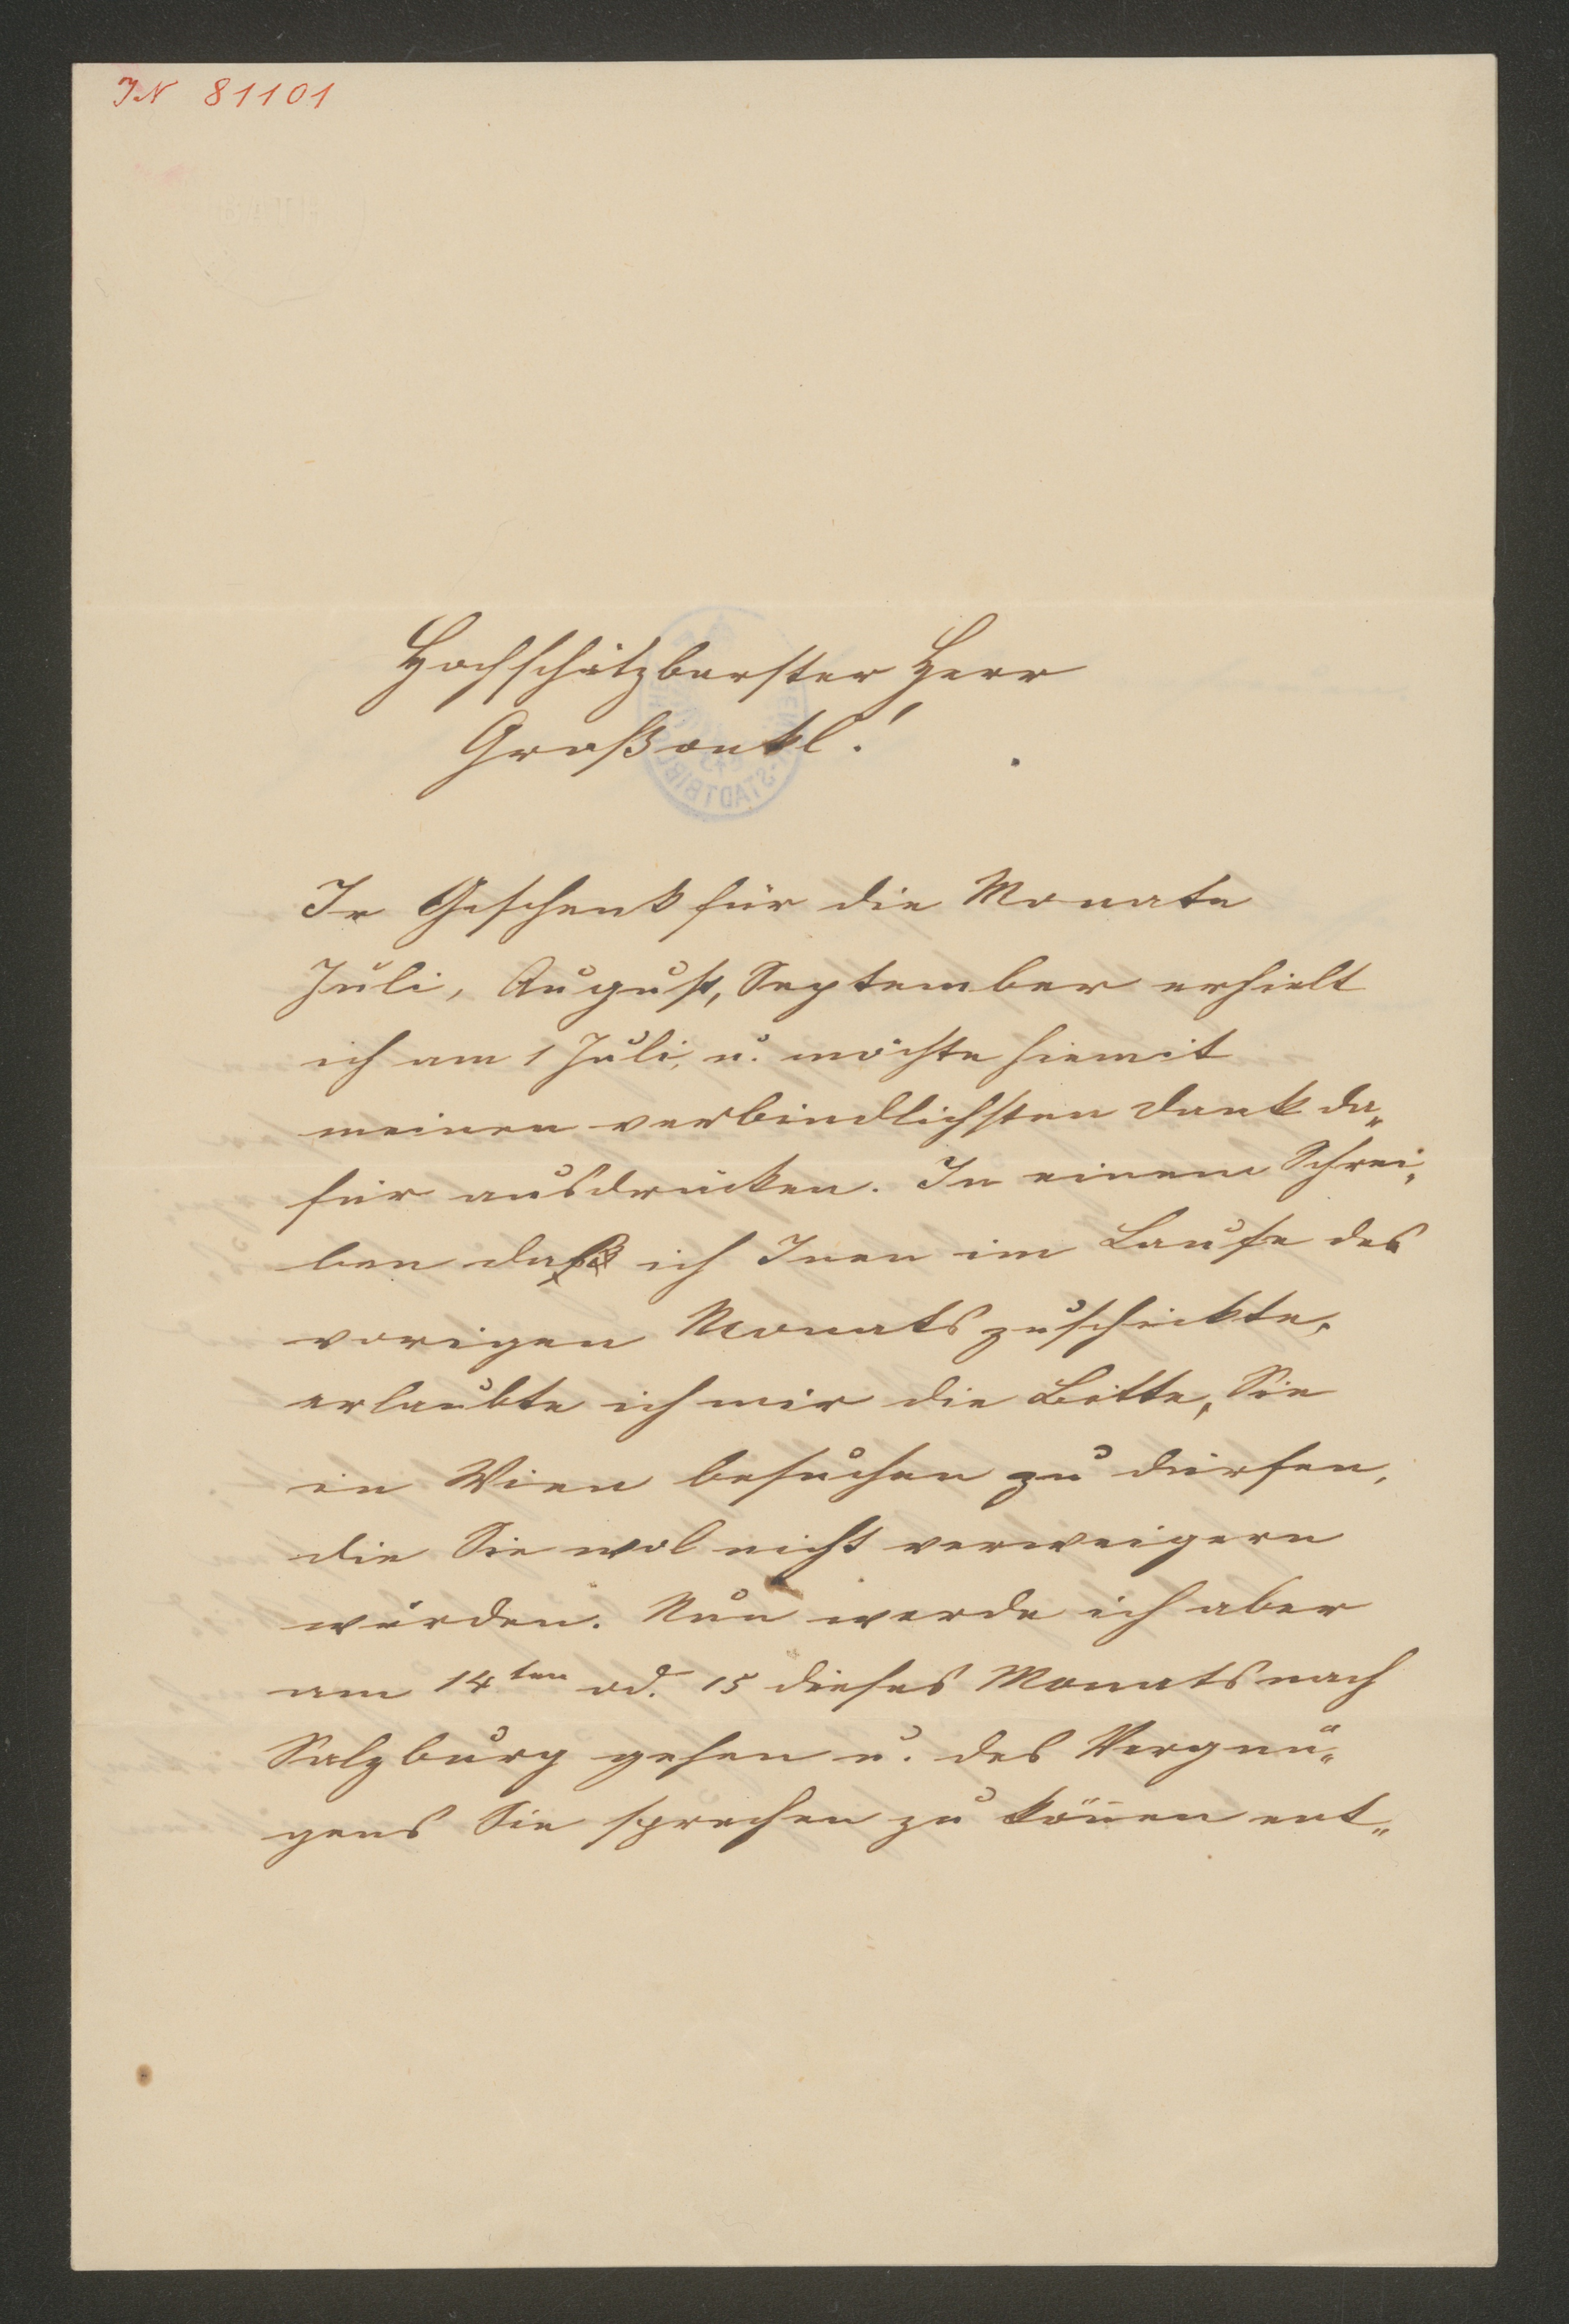 IN 81101
Hochschätzbarster Herr
Großonkl!
Ir Geschenk für die Monate
Juli, August, September erhielt
ich am 1 Juli, u. möchte hiemit
meinen verbindlichsten Dank da„
für ausdrücken. In einem Schrei„
ben daß ich Inen im Laufe des
vorigen Monats zuschickte,
erlaubte ich mir die Bitte, Sie
in Wien besuchen zu dürfen,
die Sie wol nicht verweigern
würden. Nun werde ich aber
am 14ten od. 15 dieses Monats nach
Salzburg gehen u. des Vergnü„
gens Sie sprechen zu können ent„